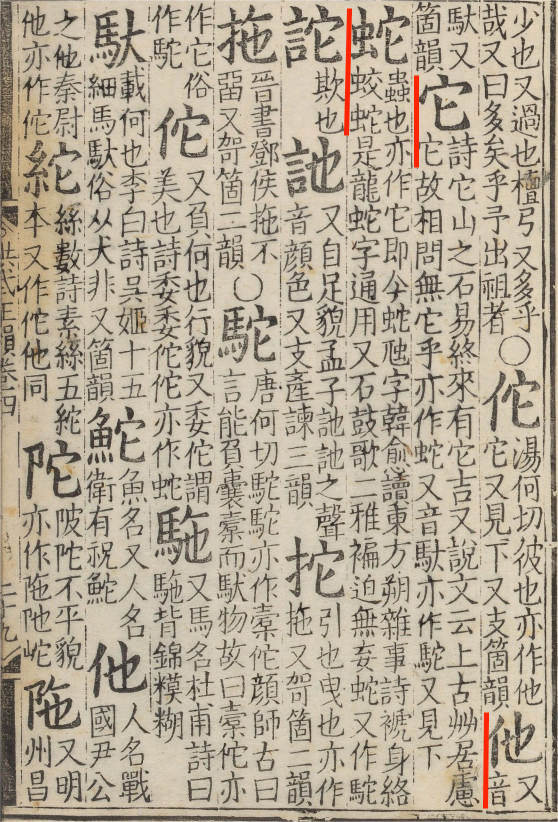 少也又過也檀弓又多乎哉又曰多矣乎予出祖者○佗湯何切彼也亦作他它又見下又支箇韻他又音
馱又箇韻它詩它山之石易終來有它吉又說文云上古艸居慮它故相問無它乎亦作蛇又音馱亦作駝又見下
蛇蟲也亦作它即今蛇虺字韓愈讀東方朔雜事詩褫身絡蛟蛇是龍蛇字通用又石鼓歌二雅褊迫無委蛇又作駝
詑欺也訑又自足貌孟子訑訑之聲音顏色又支產諫三韻拕引也曳也亦作拖又哿箇二韻
拖晉書鄧侯拖不㽞又哿箇二韻○駝唐何切駝駝亦作橐佗顏師古曰言能負囊橐而馱物故曰橐佗亦
作它俗作駞佗又負何也行貌又委佗謂美也詩委委佗佗亦作蛇駞又馬名杜甫詩曰駞背錦糢糊
馱載何也李白詩吳姬十五細馬馱俗从犬非又箇韻鮀魚名又人名衛有祝鮀他人名戰國尹公
之他秦尉他亦作佗紽絲數詩素絲五紽本又作佗他同陀陂陀不平貌亦作陁阤岮陁又明州昌